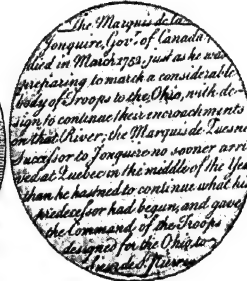 The Marquis de la
Jonquire, Gov.r of Canada
died in March 1752 just as he was
preparing to march a considerable
body of Troops to the Ohio, with de-
sign to continue their encroachments
on that River; the Marquis de Quesne
Successor to Jonquere no sooner arri-
ved at Quebec in the middle of the Year
than he hastned to continue what his
predecessor had begun, and gave
the Command of the Troops
designed for the Ohio to